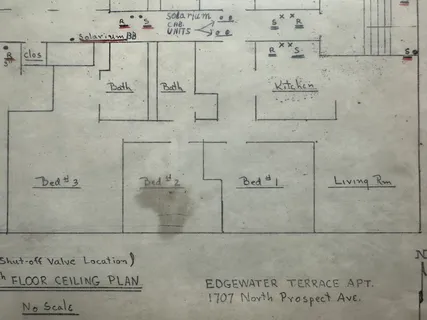 Solarium
CAB.
UNITS
R S
S R
R S
Solarium BB
S
R
S
clos
Bath
Bath
Kitchen
Bed #3
Bed #2
Bed #1
Living Rm
Shut-off Valve Location)
FLOOR CEILING PLAN
No Scale
EDGEWATER TERRACE APT.
1707 North Prospect Ave.
N